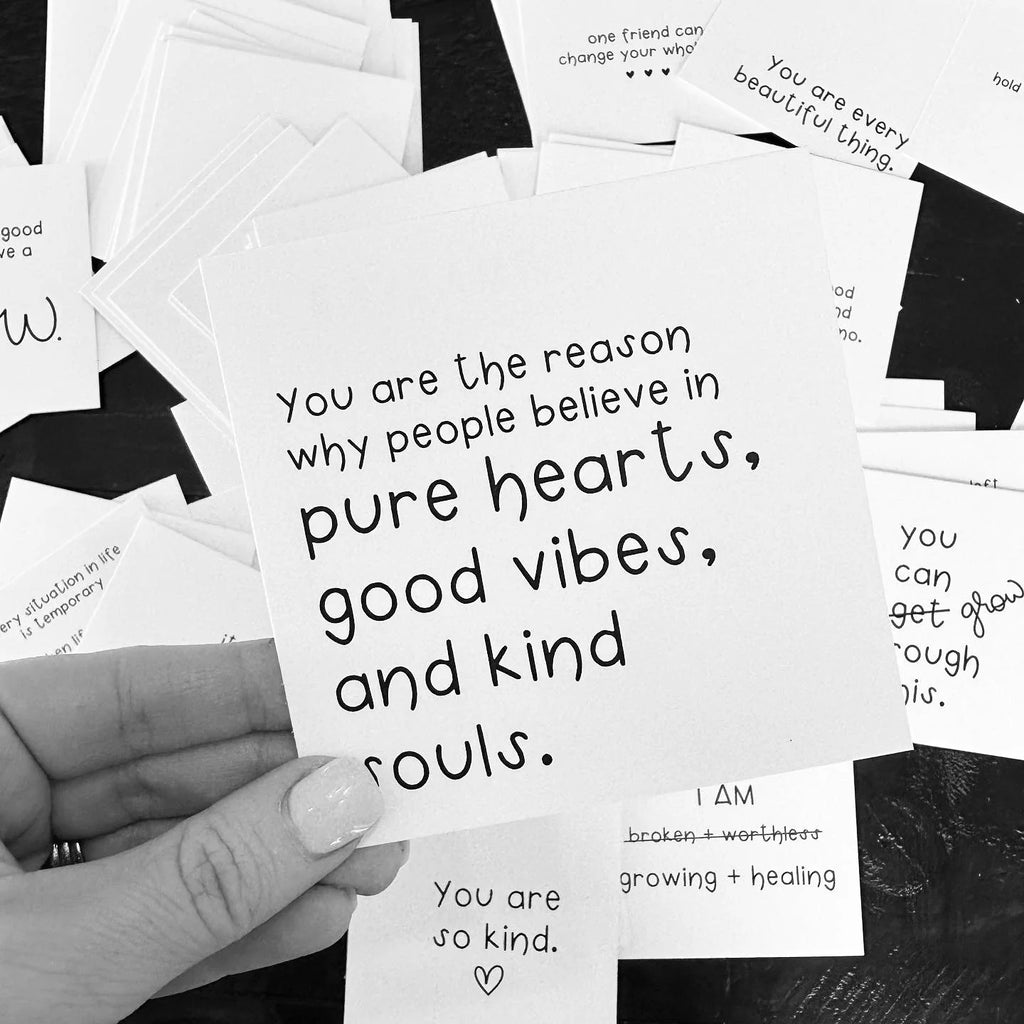 one friend can
change your
You are every
beautiful thing.
hold
good
a
W.
You are the reason
why people believe in
pure hearts,
good vibes,
and kind
souls.
situation in life
is temporary
you
can
get grow
I AM
broken + worthless
growing + healing
You are
so kind.